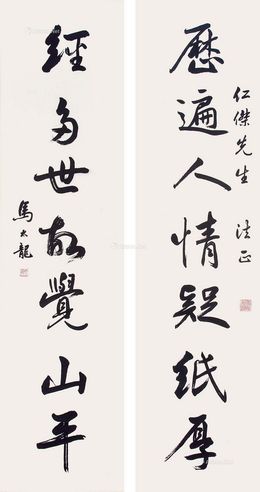 仁傑先生 法正
歷遍人情疑紙厚
經多世故覺山平
馬太龍